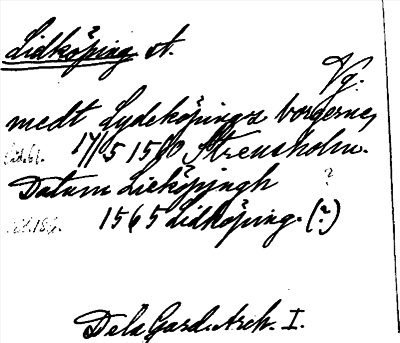 Lidköping st.
Vg.
medt Lydeköpings borgerne,
17/5 1560 Strensholm.
Datum Lieköpingh ?
1565 Lidköping. (?)
Dela Gard. Arch. I.